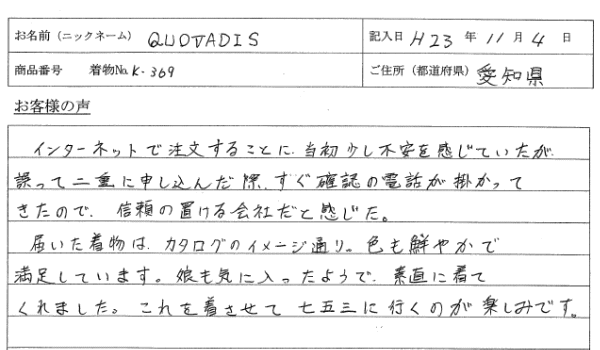 お名前(ニックネーム) QUOVADIS 記入日 H23 年 11 月 4 日
商品番号 着物No.K-369 ご住所(都道府県) 愛知県
お客様の声
インターネットで注文することに、当初少し不安を感じていたが、
誤って二重に申し込んだ際、すぐ確認の電話が掛かって
きたので、信頼の置ける会社だと感じた。
届いた着物は、カタログのイメージ通り。色も鮮やかで
満足しています。娘も気に入ったようで、素直に着て
くれました。これを着させて七五三に行くのが楽しみです。